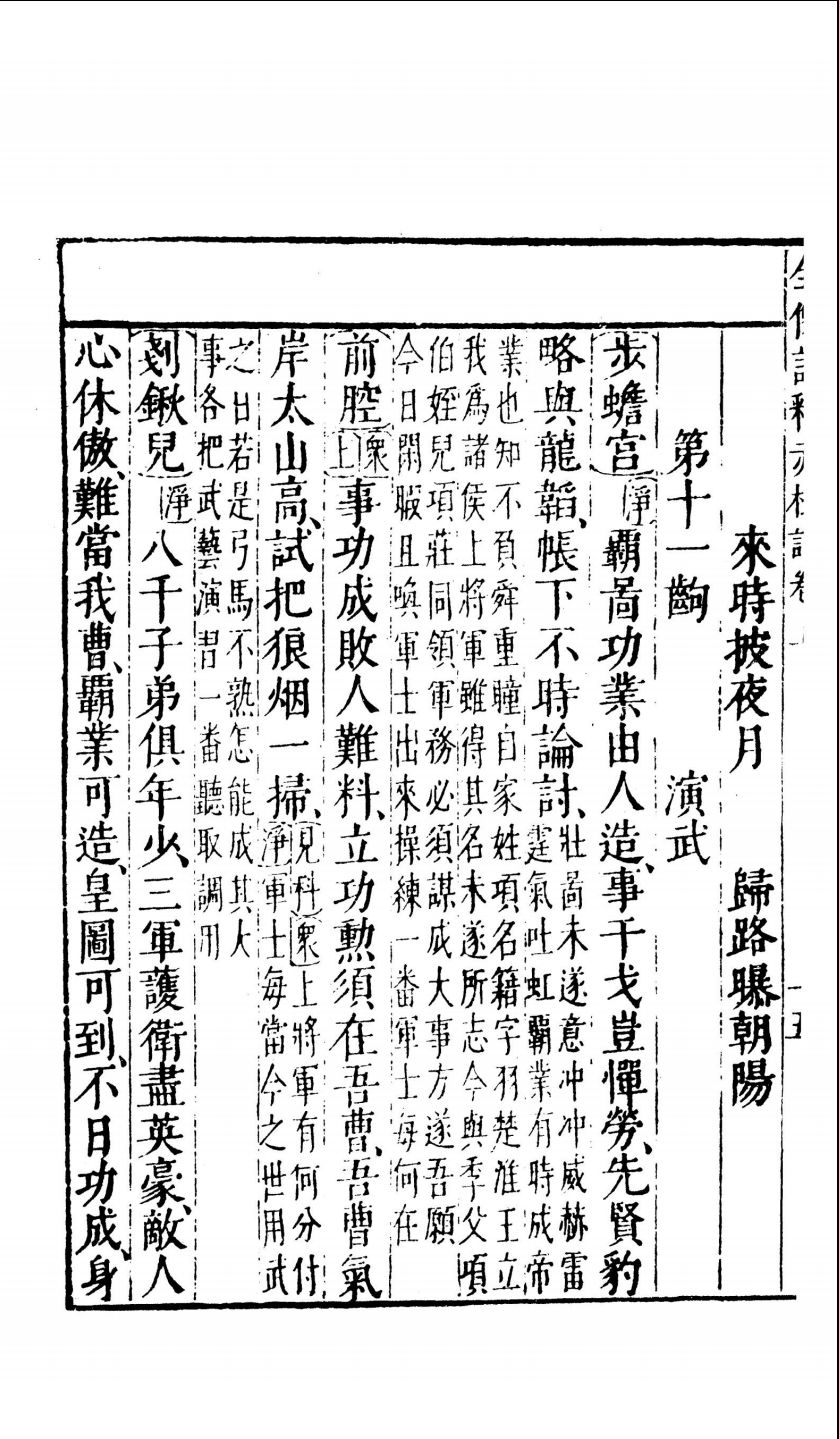 全像註釋赤松記卷
來時披夜月　歸路曝朝陽
第十一齣　演武
步蟾宮淨覇啚功業由人造、事干戈豈憚勞、先賢豹
略與龍韜、帳下不時論討、壯啚未遂意冲冲威赫雷
霆氣吐虹覇業有時成帝
業也知不負舜重瞳自家姓項名籍字羽楚淮王立
我爲諸侯上將軍雖得其名未遂所志今與季父項
伯姪兒項莊同領軍務必須謀成大事方遂吾願
今日閑暇且喚軍士出來操練一番軍士每何在
前腔衆上事功成敗人難料、立功勲須在吾曹、吾曹氣
岸太山高、試把狼烟一掃、見科衆上將軍有何分付
淨軍士每當今之世用武
之日若是弓馬不熟怎能成其大
事各把武藝演習一番聽取調用
剗鍬兒淨八千子弟俱年少、三軍護衛盡英豪、敵人
心休傲、難當我曹、覇業可造、皇圖可到、不日功成、身